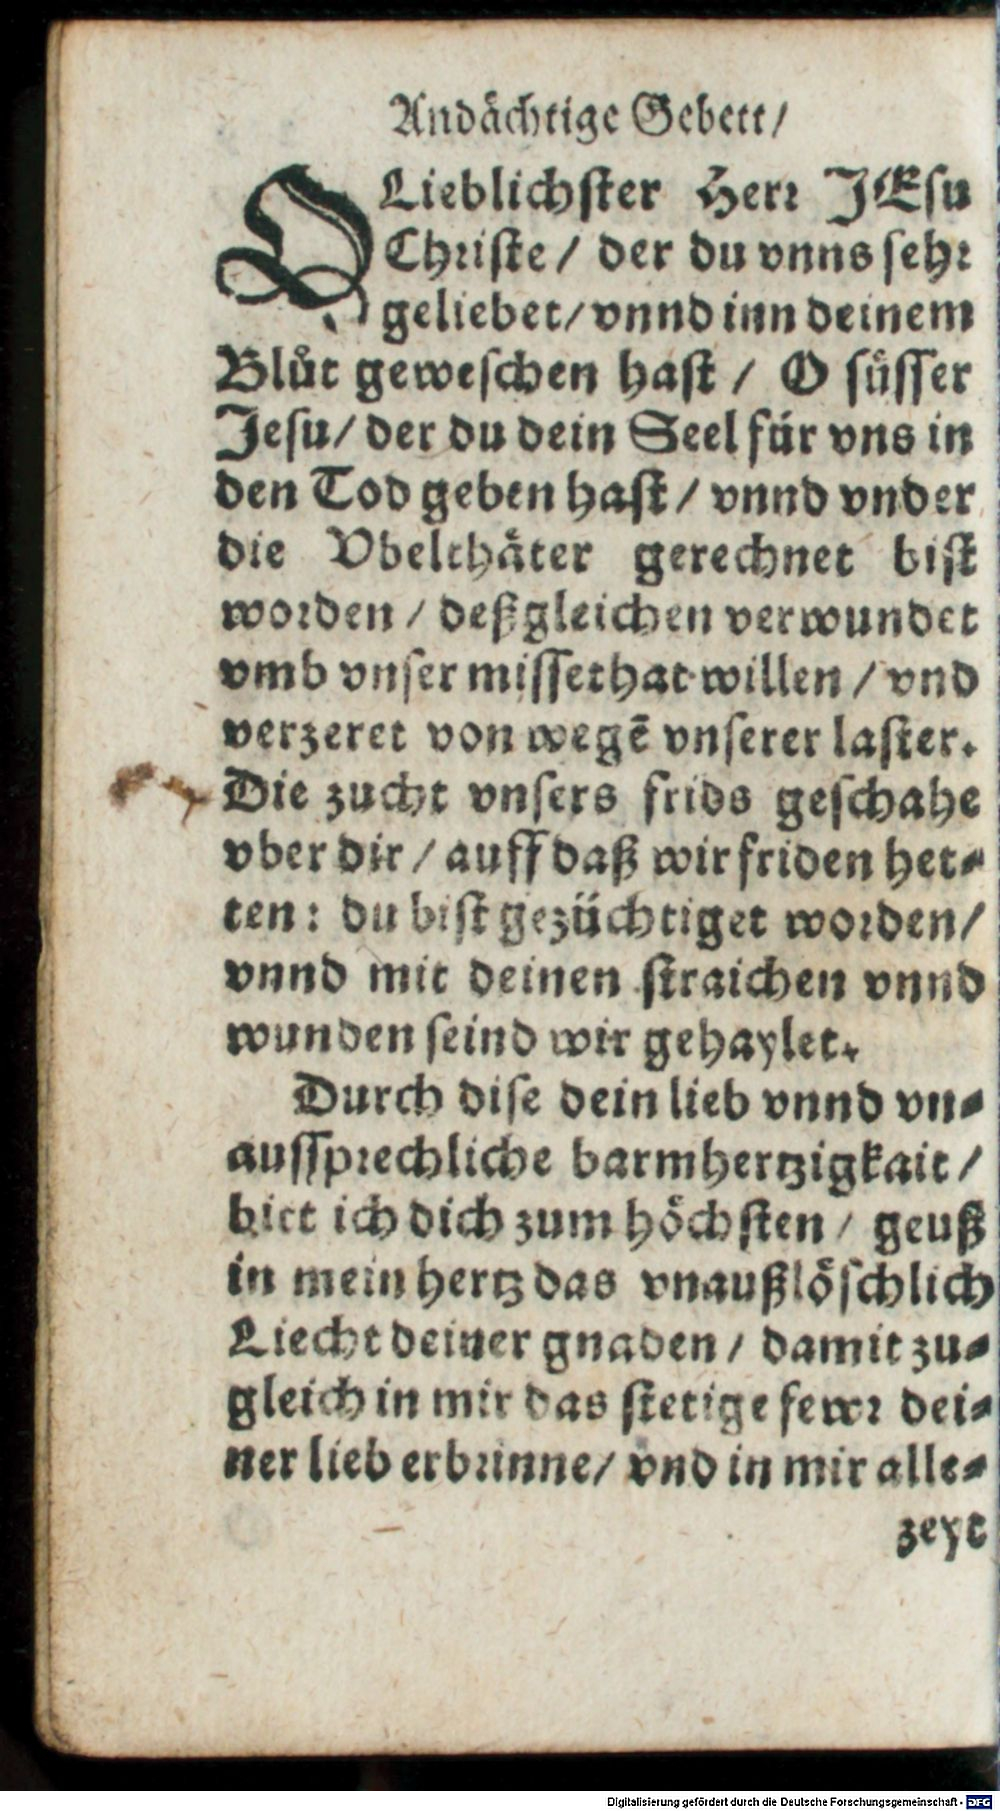 Andächtige Gebett/
O Lieblichster Herr JEsu
Christe / der du vnns sehr
geliebet/ vnnd inn deinem
Blůt geweschen hast / O süsser
Jesu/ der du dein Seel für vns in
den Tod geben hast / vnnd vnder
die Vbelthäter gerechnet bist
worden / deßgleichen verwundet
vmb vnser missethat willen / vnd
verzeret von wegē vnserer laster.
Die zucht vnsers frids geschahe
vber dir / auff daß wir friden het-
ten: du bist gezüchtiget worden/
vnnd mit deinen straichen vnnd
wunden seind wir gehaylet.
Durch dise dein lieb vnnd vn-
aussprechliche barmhertzigkait /
bitt ich dich zum höchsten / geuß
in mein hertz das vnaußlöschlich
Liecht deiner gnaden / damit zu-
gleich in mir das stetige fewr dei-
ner lieb erbrinne/ vnd in mir alle-
zeyt
Digitalisierung gefördert durch die Deutsche Forschungsgemeinschaft - DFG